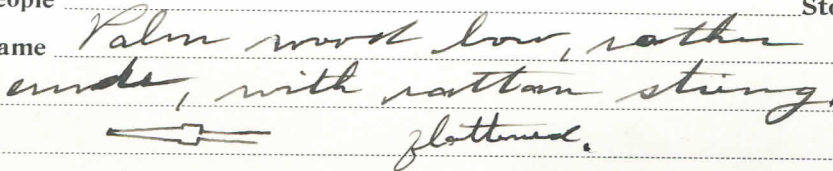 eople Sto
ame Palm wood bow, rather
crude, with rattan string,
flattened.